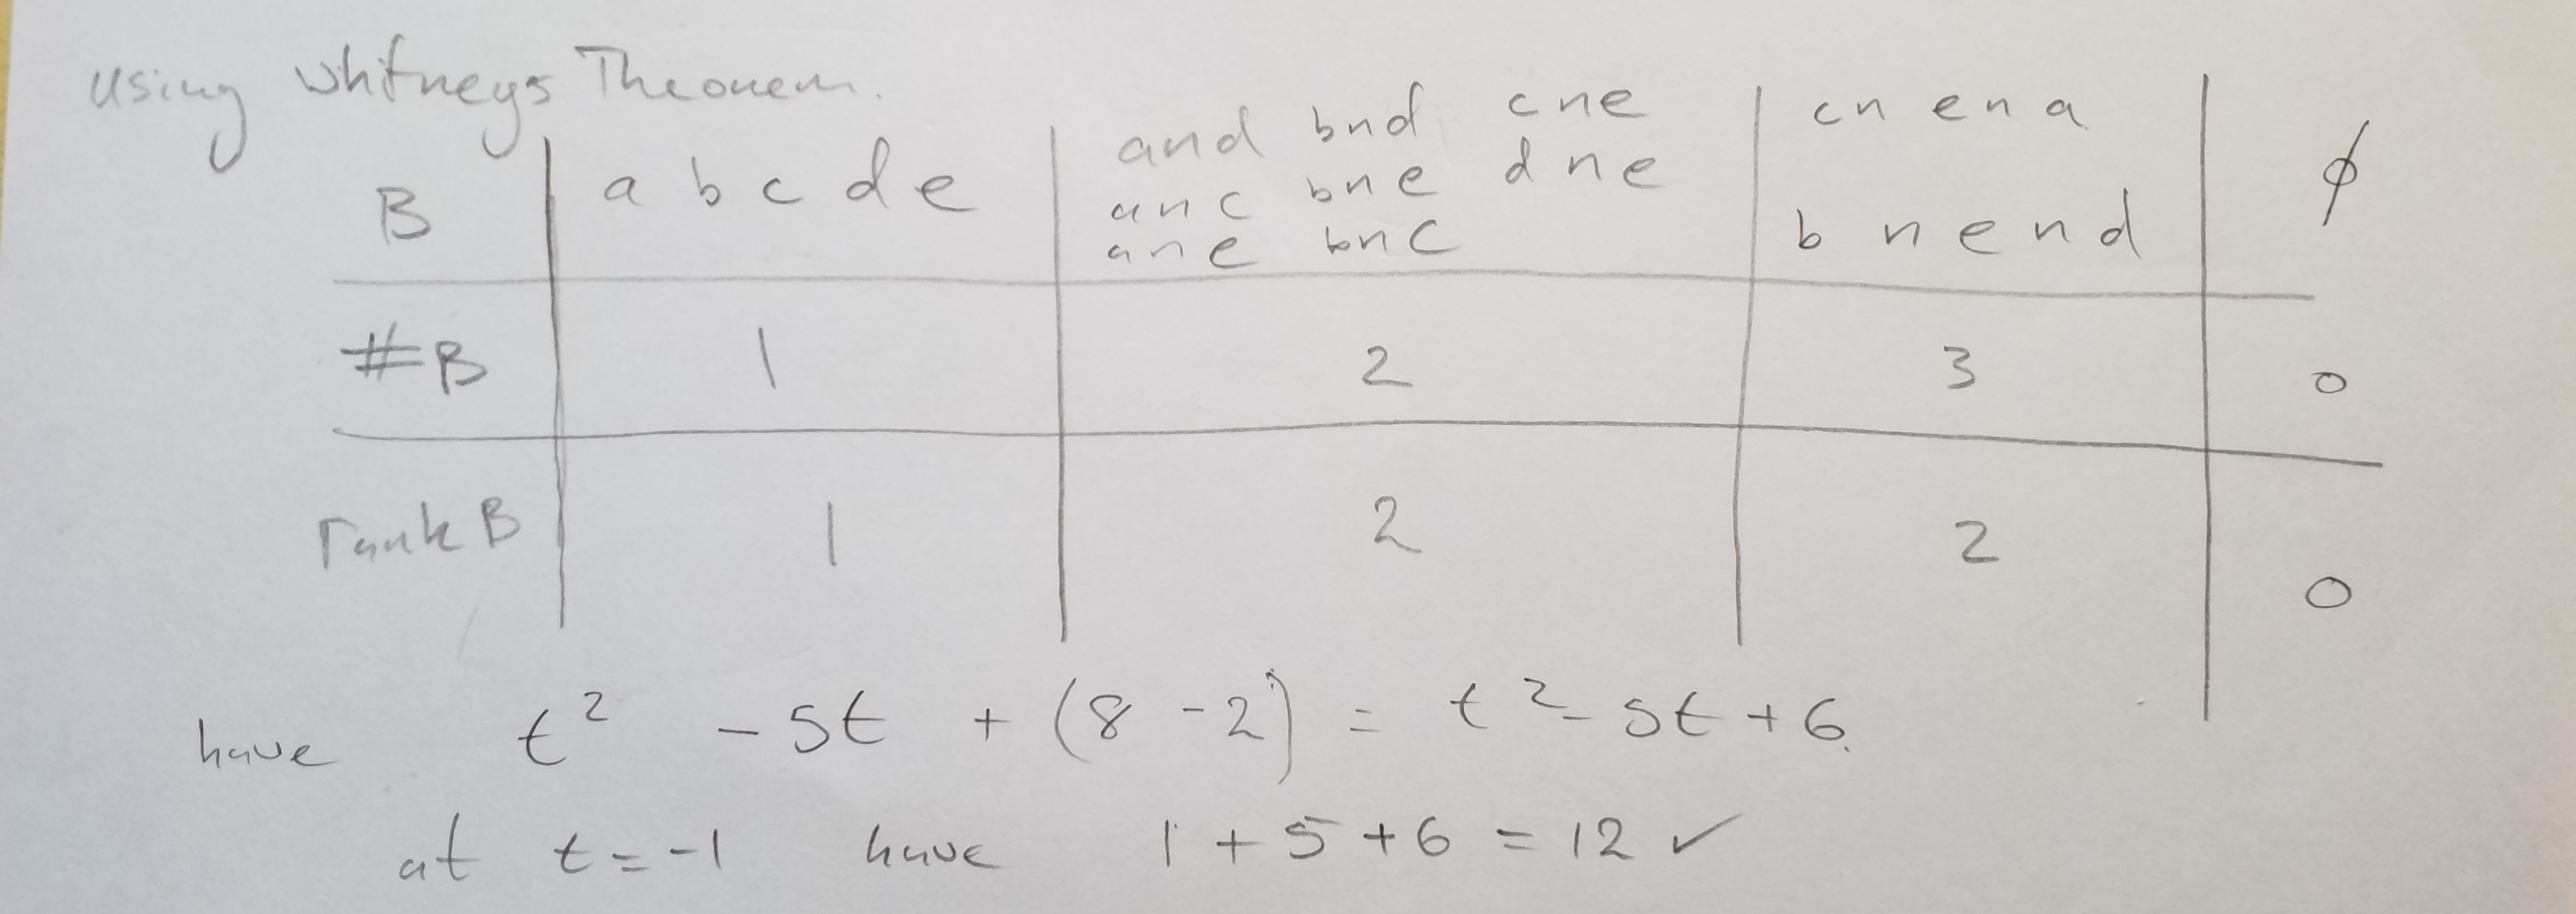 Using Whitneys Theorem.
B | a b c d e | a∩d b∩d c∩e a∩c b∩e d∩e a∩e b∩c | c∩e∩a b∩e∩d | ϕ
#B | 1 | 2 | 3 | 0
rank B | 1 | 2 | 2 | 0
have t² - 5t + (8 - 2) = t² - 5t + 6.
at t = -1 have 1 + 5 + 6 = 12 ✓